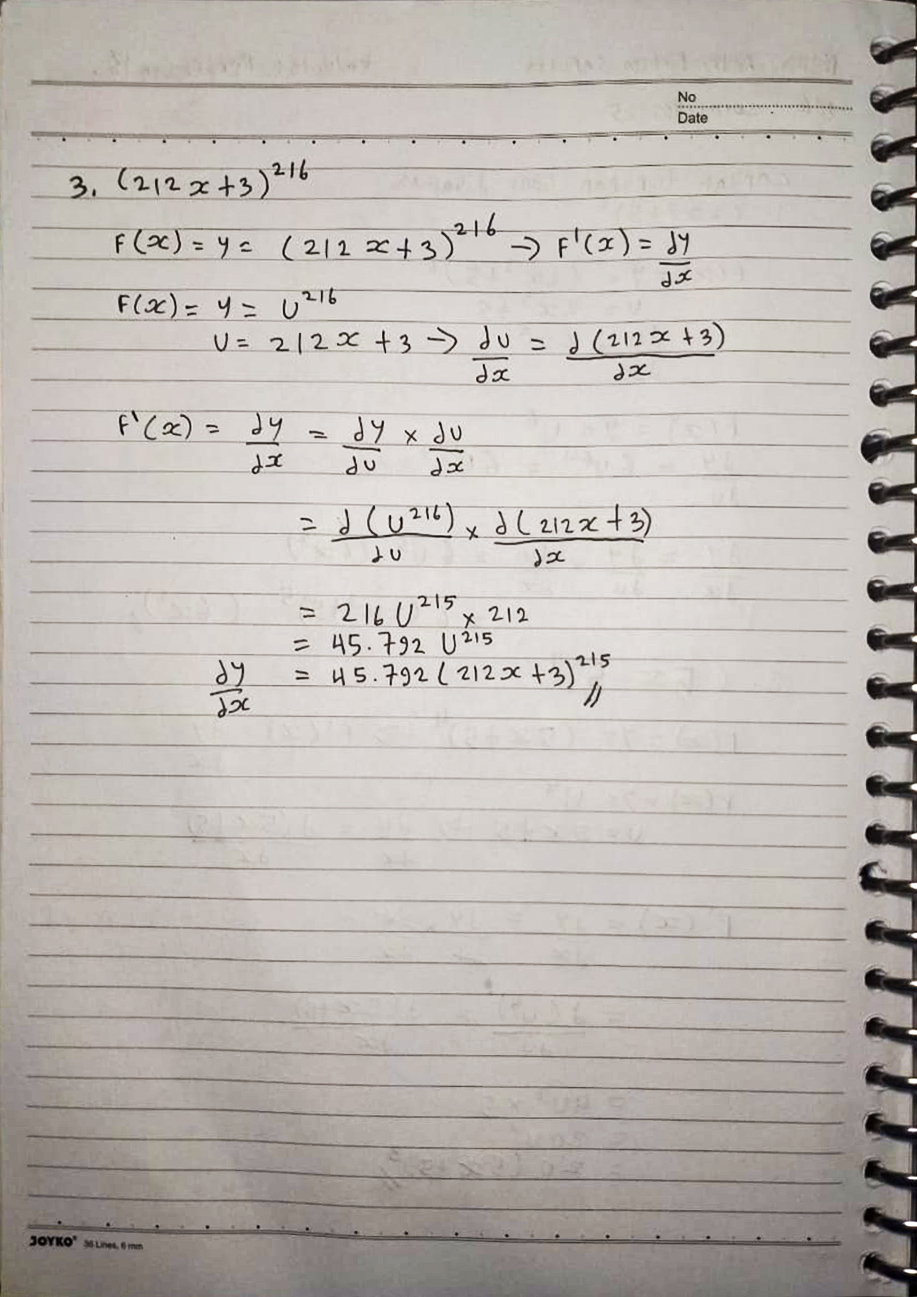 No
Date
3. (212x+3)^216
F(x) = y = (212x+3)^216 → F'(x) = dy/dx
F(x) = y = U^216
U = 212x+3 → du/dx = d(212x+3)/dx
F'(x) = dy/dx = dy/du × du/dx
= d(U^216)/du × d(212x+3)/dx
= 216 U^215 × 212
= 45.792 U^215
dy/dx = 45.792 (212x+3)^215 //
JOYKO® 36 Lines, 6 mm